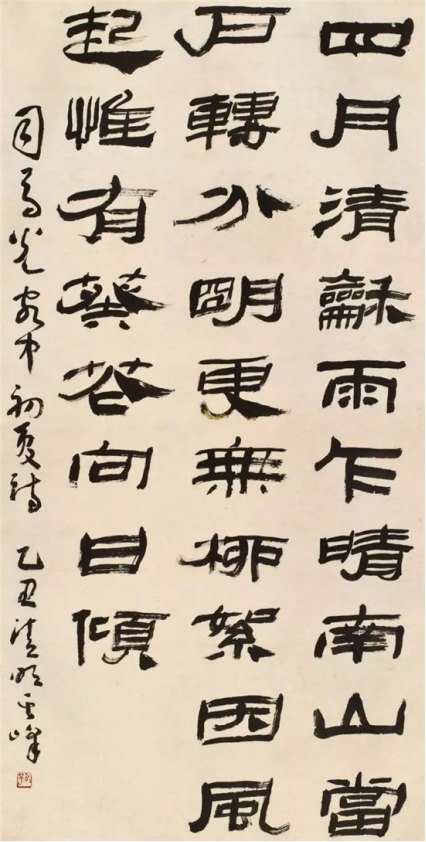 四月清龢雨乍晴南山當
戶轉分明更無柳絮因風
起惟有葵花向日傾
司馬光客中初夏詩 乙丑清明云峰